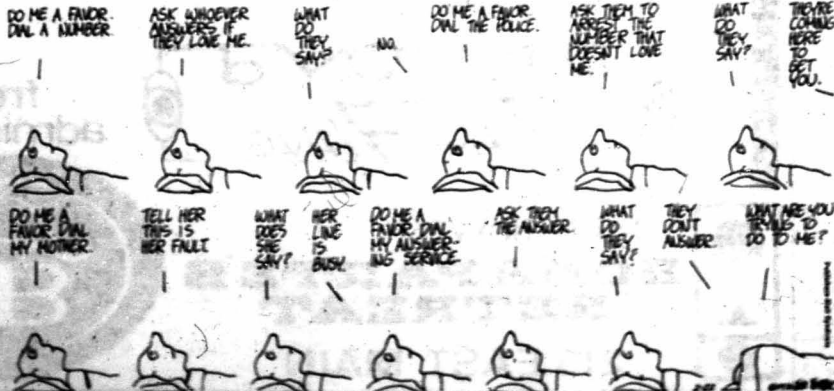 DO ME A FAVOR.
DIAL A NUMBER.
ASK WHOEVER
ANSWERS IF
THEY LOVE ME.
WHAT
DO
THEY
SAY?
NO.
DO ME A FAVOR
DIAL THE POLICE.
ASK THEM TO
ARREST THE
NUMBER THAT
DOESNT LOVE
ME.
WHAT
DO
THEY
SAY?
THEYRE
COMING
HERE
TO
GET
YOU.
DO ME A
FAVOR DIAL
MY MOTHER.
TELL HER
THIS IS
HER FAULT.
WHAT
DOES
SHE
SAY?
HER
LINE
IS
BUSY.
DO ME A
FAVOR DIAL
MY ANSWER-
ING SERVICE.
ASK THEM
THE ANSWER.
WHAT
DO
THEY
SAY?
THEY
DON'T
ANSWER.
WHAT ARE YOU
TRYING TO
DO TO ME?